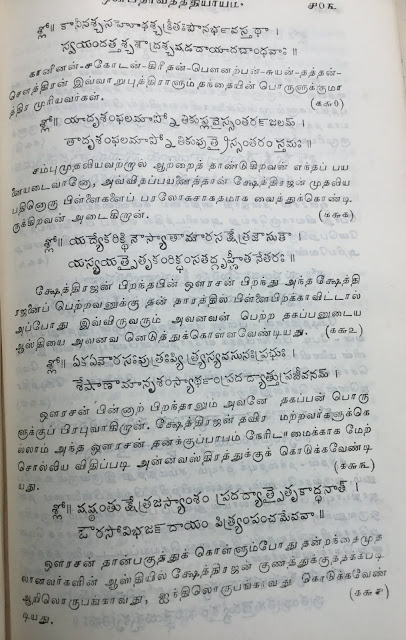 ஒன்பதாவதத்தியாயம். ௪௦௫
శ్లో॥ కానీనశ్చసహోఢశ్చక్రీతఃపౌనర్భవస్తథా ।
స్వయందత్తశ్చశౌద్రశ్చషడదాయాదబాంధవాః ॥
கானீனன்-சகோடன்-கிரீதன்-பௌனற்பன்-சுயன்-தத்தன்-
சௌத்திரன் இவ்வாறுபுத்திராளும் தந்தையின் பொருளுக்குமா
த்திர முரியவர்கள். (௧௬௦)
శ్లో॥ యాదృశంఫలమాప్నోతికుప్లవైస్సంతరఞ్జలమ్ ।
తాదృశంఫలమాప్నోతికుపుత్రైస్సంతరంస్తమః ॥
சம்புமுதலியவற்றால் ஆற்றைத் தாண்டுகிறவன் எந்தப் பய
னையடைவானோ, அவ்விதப்பயனைத்தான் க்ஷேத்திரஜன் முதலிய
பதினொரு பிள்ளைகளைப் பரலோகசாதகமாக வைத்துக்கொண்டி
ருக்கிறவன் அடைகிறான். (௧௬௧)
శ్లో॥ యద్యేకరిక్థినౌస్యాతామౌరసక్షేత్రజౌసుతౌ ।
యస్యయత్పైతృకంరిక్థంసతద్గృహ్ణీతనేతరః ॥
க்ஷேத்திரஜன் பிறந்தபின் ஔரசன் பிறந்து அந்த க்ஷேத்தி
ரஜனைப் பெற்றவனுக்கு தன் தாரத்தில் பிள்ளைபிறக்காவிட்டால்
அப்போது இவ்விருவரும் அவனவன் பெற்ற தகப்பனுடைய
ஆஸ்தியை அவனவ னெடுத்துக்கொள்ளவேண்டியது. (௧௬௨)
శ్లో॥ ఏకఏవౌరసఃపుత్రఃపిత్ర్యస్యవసునఃప్రభుః ।
శేషాణామానృశంస్యార్థంప్రదద్యాత్తుప్రజీవనమ్ ॥
ஔரசன் பின்னாற் பிறந்தாலும் அவனே தகப்பன் பொரு
ளுக்குப் பிரபுவாகிறான். க்ஷேத்திரஜன் தவிர மற்றவர்களுக்கெ
ல்லாம் அந்த ஔரசன் தனக்குப்பாபம் நேரிடாமைக்காக மேற்
சொல்லிய விதிப்படி அன்னவஸ்திரத்துக்குக் கொடுக்கவேண்டி
யது. (௧௬௩)
శ్లో॥ షష్ఠంతుక్షేత్రజస్యాంశం ప్రదద్యాత్పైతృకాద్ధనాత్ ।
ఔరసోవిభజన్ దాయం పిత్ర్యంపంచమమేవవా ॥
ஔரசன் தான்பகுத்துக் கொள்ளும்போது தன்தந்தைமுத
லானவர்களின் ஆஸ்தியில் க்ஷேத்திரஜன் குணத்துக்குத்தக்கபடி
ஆறிலொருபங்காவது, ஐந்திலொருபங்காவது கொடுக்கவேண்
டியது. (௧௬௪)